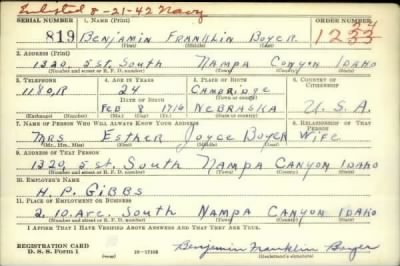 Enlisted 8-21-42 Navy
SERIAL NUMBER 1. NAME (Print) ORDER NUMBER
819 BENJAMIN FRANKLIN BOYER 1233
(First) (Middle) (Last)
2. ADDRESS (Print)
1220, 5 ST. SOUTH NAMPA CANYON IDAHO
(Number and street or R. F. D. number) (Town) (County) (State)
3. TELEPHONE 4. AGE IN YEARS 5. PLACE OF BIRTH 6. COUNTRY OF CITIZENSHIP
1180R 24 CAMBRIDGE
DATE OF BIRTH
FEB 8 1916 NEBRASKA U.S.A.
(Exchange) (Number) (Mo.) (Day) (Yr.) (State or country)
7. NAME OF PERSON WHO WILL ALWAYS KNOW YOUR ADDRESS 8. RELATIONSHIP OF THAT PERSON
MRS ESTHER JOYCE BOYER WIFE
(Mr., Mrs., Miss) (First) (Middle) (Last)
9. ADDRESS OF THAT PERSON
1220, 5 ST. SOUTH NAMPA CANYON IDAHO
(Number and street or R. F. D. number) (Town) (County) (State)
10. EMPLOYER'S NAME
H. P. GIBBS
11. PLACE OF EMPLOYMENT OR BUSINESS
2, 10. AVE. SOUTH NAMPA CANYON IDAHO
(Number and street or R. F. D. number) (Town) (County) (State)
I AFFIRM THAT I HAVE VERIFIED ABOVE ANSWERS AND THAT THEY ARE TRUE.
REGISTRATION CARD
D. S. S. Form 1 Benjamin Franklin Boyer